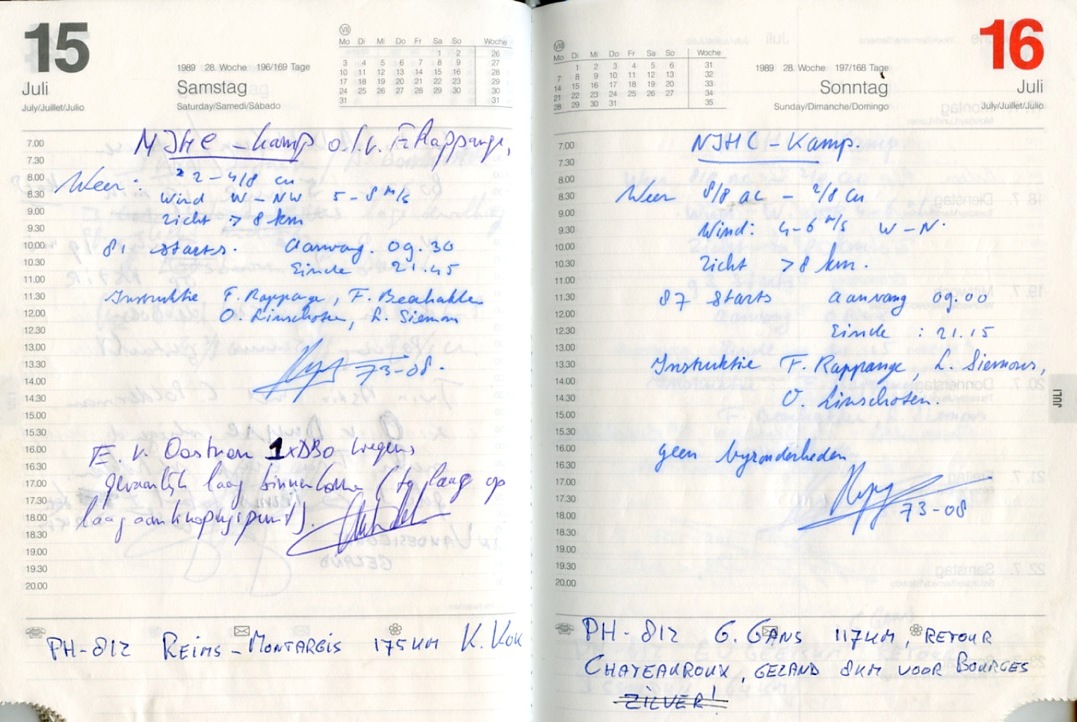 15
Juli
July/Juillet/Julio
1989 28. Woche 196/169 Tage
Samstag
Saturday/Samedi/Sábado
VII
Mo Di Mi Do Fr Sa So Woche
1 2 26
3 4 5 6 7 8 9 27
10 11 12 13 14 15 16 28
17 18 19 20 21 22 23 29
24 25 26 27 28 29 30 30
31 31
7.00
7.30
8.00
8.30
9.00
9.30
10.00
10.30
11.00
11.30
12.00
12.30
13.00
13.30
14.00
14.30
15.00
15.30
16.00
16.30
17.00
17.30
18.00
18.30
19.00
19.30
20.00
NJHC - Kamp o.l.v. F. Rappange,
Weer: 2-4/8 cu
Wind W-NW 5-8 m/s
zicht > 8 km
81 starts. Aanvang. 09.30
Einde 21.45
Instruktie F. Rappange, F.
O. Linschoten, L. Siemon
73-08.
E. v. Oostrom 1xDBO wegens
gevaarlijk laag binnenkomen (te laag op
laag aanknopingspunt).
PH-812 Reims-Montargis 175km K. Kok
VIII
Mo Di Mi Do Fr Sa So Woche
1 2 3 4 5 6 31
7 8 9 10 11 12 13 32
14 15 16 17 18 19 20 33
21 22 23 24 25 26 27 34
28 29 30 31 35
1989 28. Woche 197/168 Tage
Sonntag
Sunday/Dimanche/Domingo
16
Juli
July/Juillet/Julio
7.00
7.30
8.00
8.30
9.00
9.30
10.00
10.30
11.00
11.30
12.00
12.30
13.00
13.30
14.00
14.30
15.00
15.30
16.00
16.30
17.00
17.30
18.00
18.30
19.00
19.30
20.00
NJHC-Kamp.
Weer 8/8 ac - 2/8 cu
Wind: 4-6 m/s W-N.
Zicht >8 km.
87 starts aanvang 09.00
Einde : 21.15
Instruktie F. Rappange, L. Siemons,
O. Linschoten.
geen byzonderheden
73-08
JULI
PH-812 G. Gans 117km, retour
Chateauroux, geland 8km voor Bourges
Zilver!